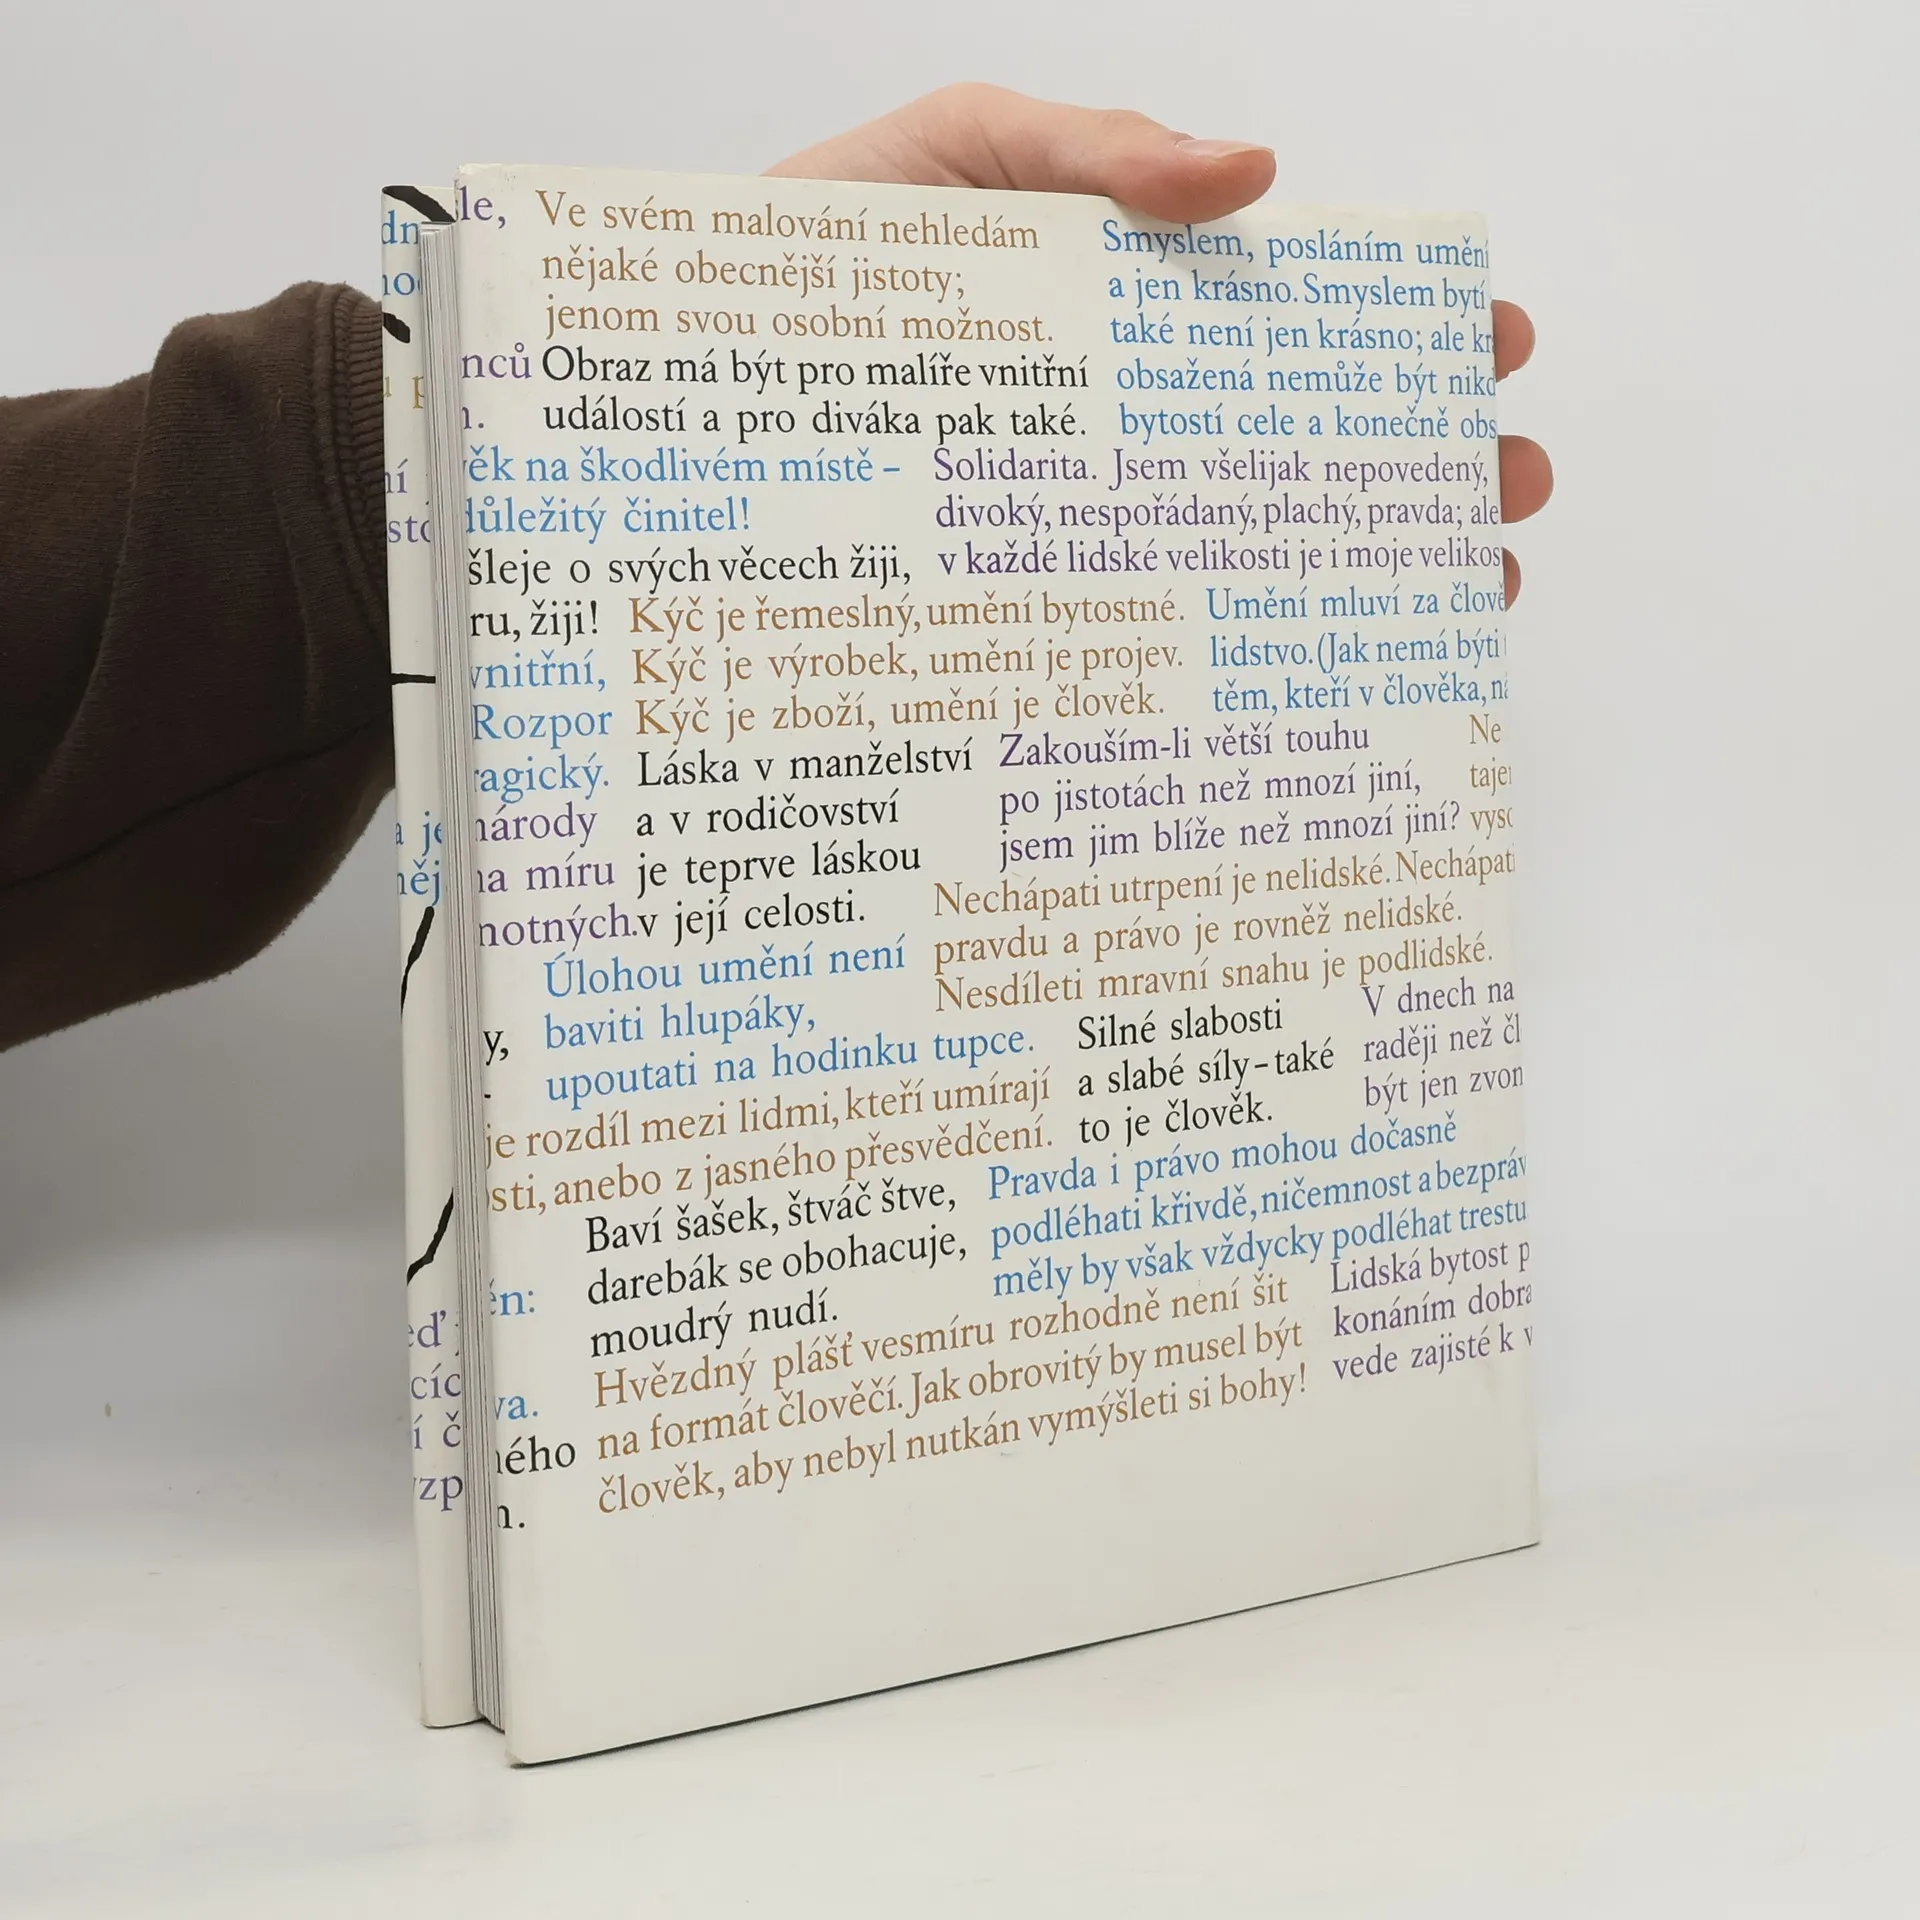 Ve svém malování nehledám
nějaké obecnější jistoty;
jenom svou osobní možnost.
Smyslem, posláním umění
a jen krásno. Smyslem bytí
také není jen krásno; ale
obsažená nemůže být
bytostí cele a konečně
Obraz má být pro malíře vnitřní
událostí a pro diváka pak také.
na škodlivém místě –
důležitý činitel!
Solidarita. Jsem všelijak nepovedený,
divoký, nespořádaný, plachý, pravda; ale
v každé lidské velikosti je i moje
o svých věcech žiji,
žiji!
Kýč je řemeslný, umění bytostné.
Kýč je výrobek, umění je projev.
Kýč je zboží, umění je člověk.
Umění mluví za
lidstvo. (Jak nemá býti
těm, kteří v člověka,
vnitřní,
Rozpor
Láska v manželství
a v rodičovství
je teprve láskou
v její celosti.
Zakouším-li větší touhu
po jistotách než mnozí jiní,
jsem jim blíže než mnozí jiní?
Ne
národy
na míru
Nechápati utrpení je nelidské. Nechápati
pravdu a právo je rovněž nelidské.
Nesdíleti mravní snahu je podlidské.
Úlohou umění není
baviti hlupáky,
upoutati na hodinku tupce.
Silné slabosti
a slabé síly – také
to je člověk.
V dnech na
raději než
být jen
je rozdíl mezi lidmi, kteří umírají
anebo z jasného přesvědčení.
Baví šašek, štváč štve,
darebák se obohacuje,
moudrý nudí.
Pravda i právo mohou dočasně
podléhati křivdě, ničemnost a
měly by však vždycky podléhat trestu
Lidská bytost
konáním dobra
vede zajisté k
Hvězdný plášť vesmíru rozhodně není šit
na formát člověčí. Jak obrovitý by musel být
člověk, aby nebyl nutkán vymýšleti si bohy!